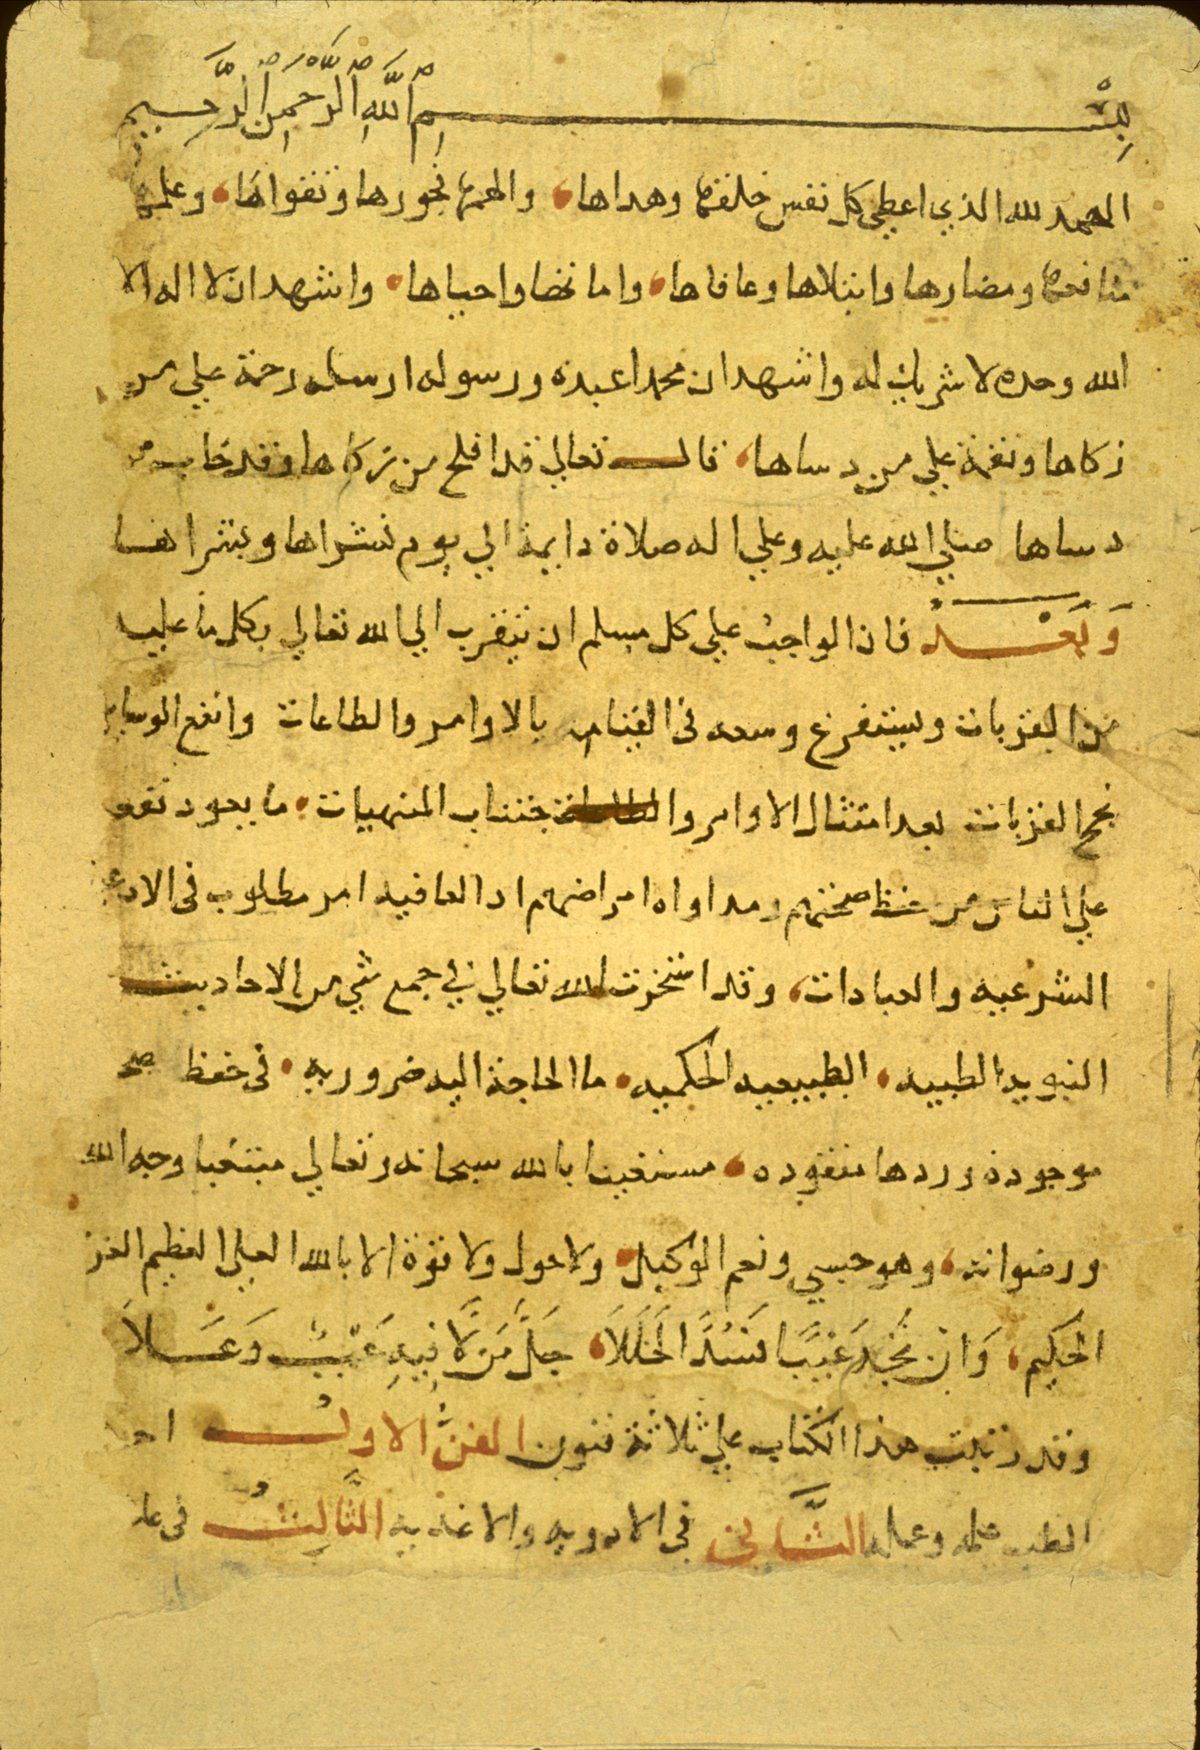 بسم الله الرحمن الرحيم
الحمد لله الذي اعطي كل نفس خلقها وهداها، والهمها فجورها وتقواها، وعلمها
منافعها ومضارها وابتلاها وعافاها، واماتها واحياها، واشهد ان لا اله الا
الله وحده لا شريك له واشهد ان محمدا عبده ورسوله ارسله رحمة علي من
زكاها ونقمة علي من دساها، قال تعالي قد افلح من زكاها وقد خاب من
دساها صلي الله عليه وعلي اله صلاة دايمة الي يوم
وَبَعْد فان الواجب علي كل مسلم ان يتقرب الي الله تعالي بكل ما عليه
من القربات ويستفرغ وسعه في القيام بالاوامر والطاعات وانفع الوسايل
نجح القربات بعد امتثال الاوامر وا جتناب المنهيات، ما يعود نفعه
علي الناس من حفظ صحتهم ومداواه امراضهم اد العافيه امر مطلوب في الادعية
الشرعيه والعبادات، وقد استخرت الله تعالي في جمع شي من الاحاديث
النبويه الطبيه، الطبيعيه الحكميه، ما الحاجة اليه ضروريه، في حفظ صحه
موجوده وردها مفقوده، مستعينا بالله سبحانه وتعالي مبتغيا وجه الله
ورضوانه، وهو حسبي ونعم الوكيل، ولا حول ولا قوة الا بالله العلي العظيم العزيز
الحكيم، وَان تجد عَيْبًا فَسُدَّ الخَلَلاَ، جَلَّ مَن لا فِيهِ عَيْبٌ وَعَلاَ
وقد رتبت هذا الكتاب علي ثلاثة فنون الفنُّ الاول
الطب علمه وعمله الثَّاني في الادويه والاغذيه الثَّالِثُ في